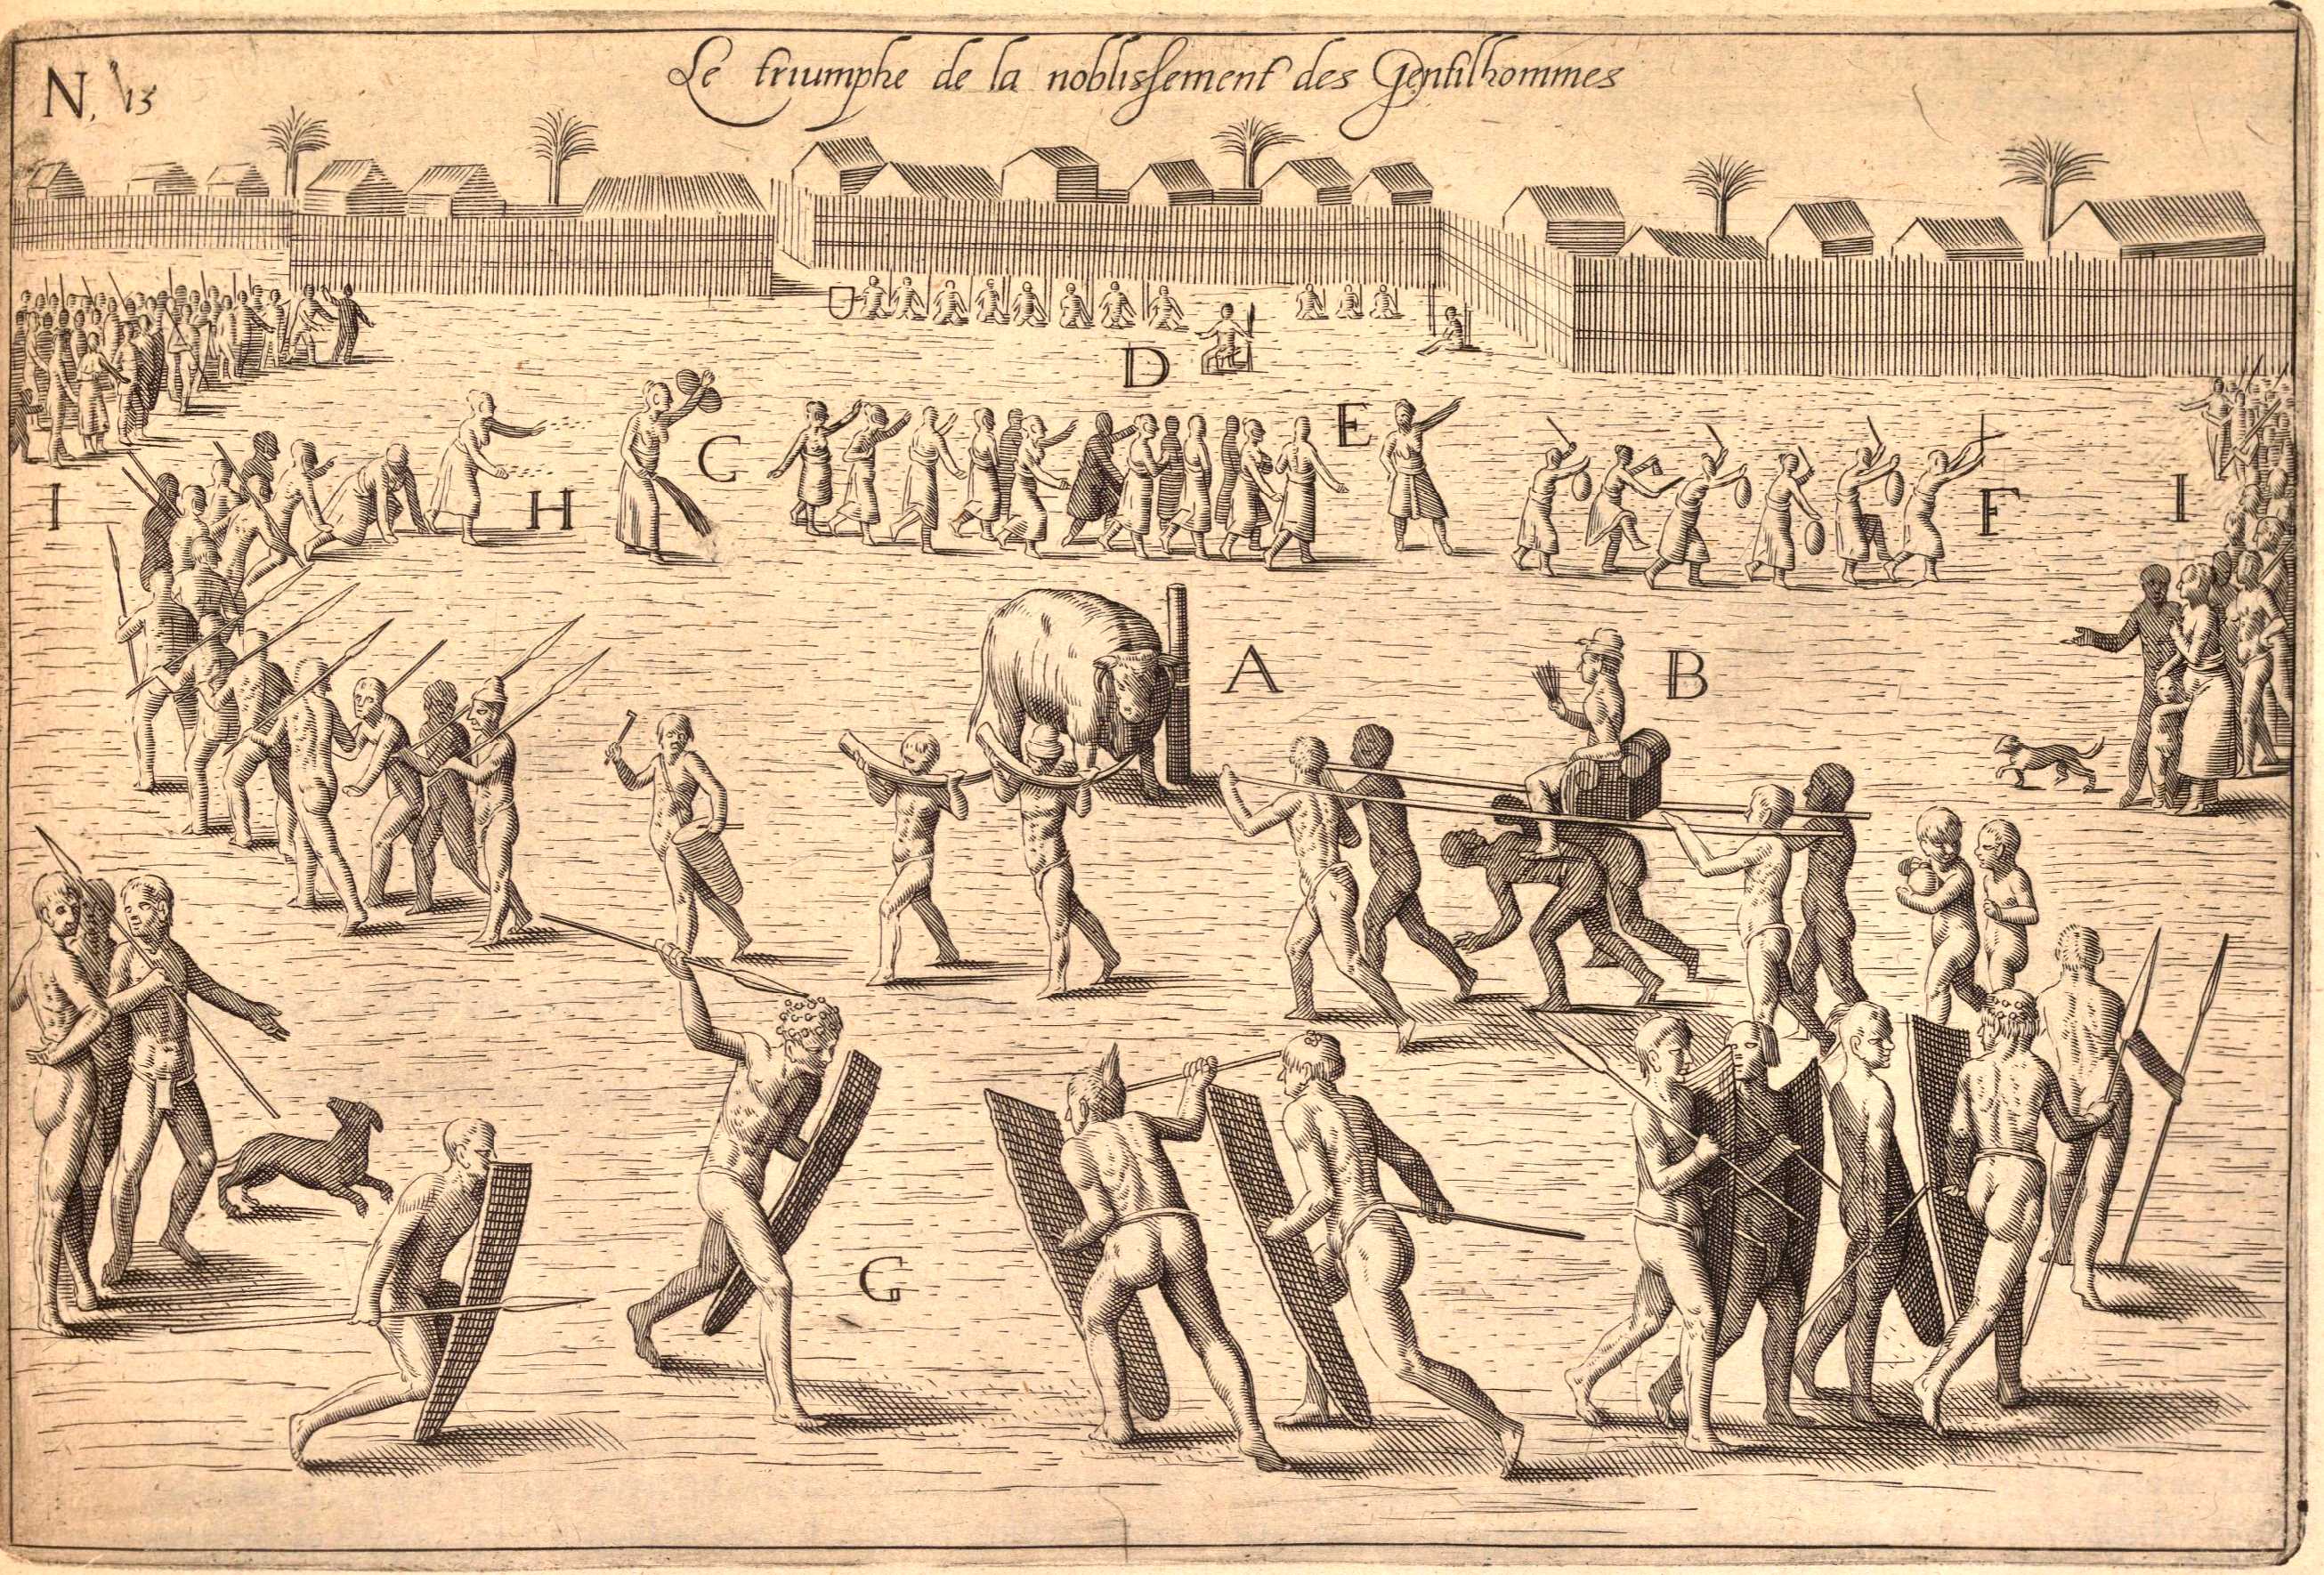 N. 15
Le triumphe de la noblissement des Gentilhommes
D
E
C
I
H
F
I
A
B
G